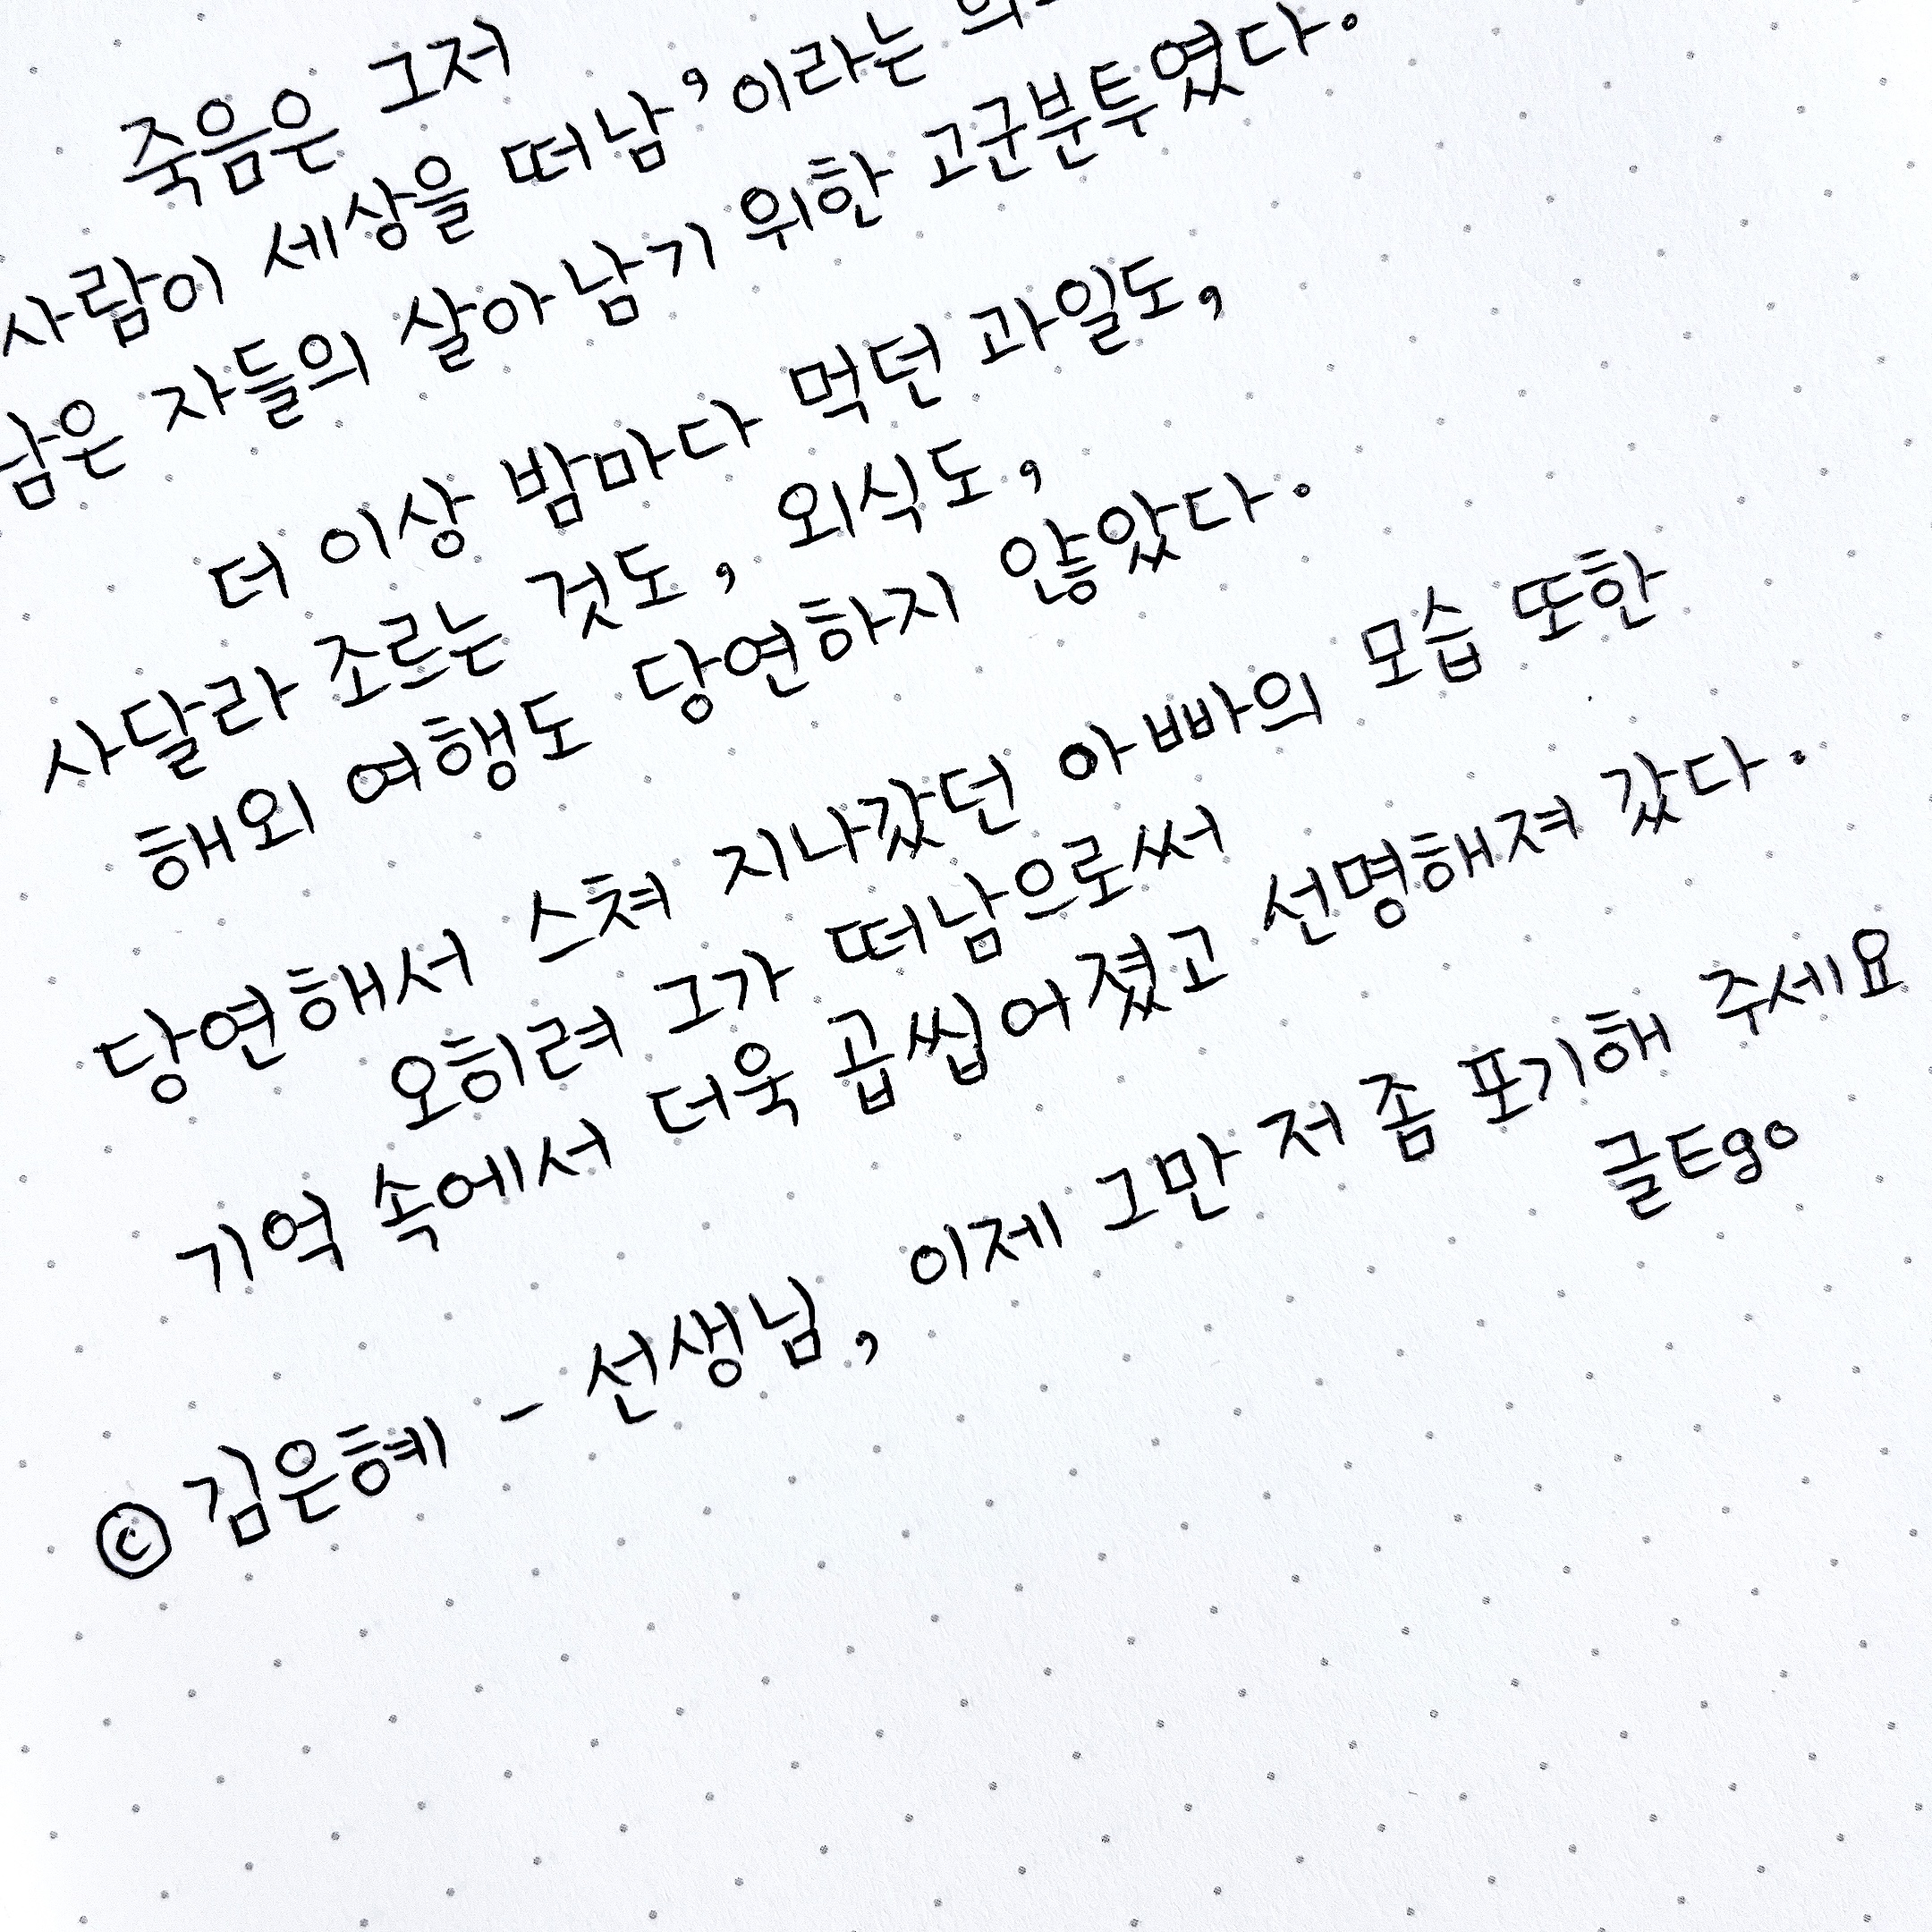 죽음은 그저
사람이 세상을 떠남’이라는
남은 자들의 살아남기 위한 고군분투였다.
더 이상 밤마다 먹던 과일도,
사달라 조르는 것도, 외식도,
해외 여행도 당연하지 않았다.
당연해서 스쳐 지나갔던 아빠의 모습 또한
오히려 그가 떠남으로써
기억 속에서 더욱 곱씹어졌고 선명해져 갔다.
© 김은혜 - 선생님, 이제 그만 저 좀 포기해 주세요
글Ego